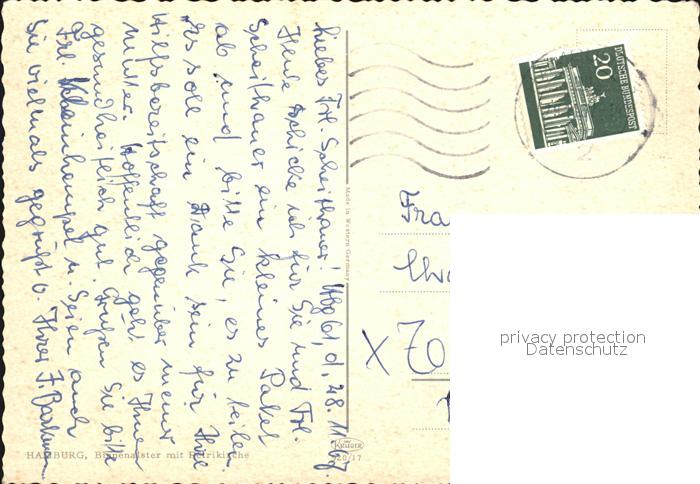 Liebes Frl. Scheithauer! Hbg 61, d. 28. 11. 67.
Heute schicke ich für Sie und Frl.
Scheithauer ein kleines Paket
ab und bitte Sie, es zu teilen.
Es soll ein Dank sein für Ihre
Hilfsbereitschaft gegenüber meiner
Mutter. Hoffentlich geht es Ihnen
gesundheitlich gut. Grüßen Sie bitte
Frl. Kleinhempel u. seien auch
Sie vielmals gegrüßt v. Ihrer
HAMBURG, Binnenalster mit Petrikirche
Krüger
920/17
Made in Western Germany
DEUTSCHE BUNDESPOST
20
Fra
x 70
privacy protection
Datenschutz